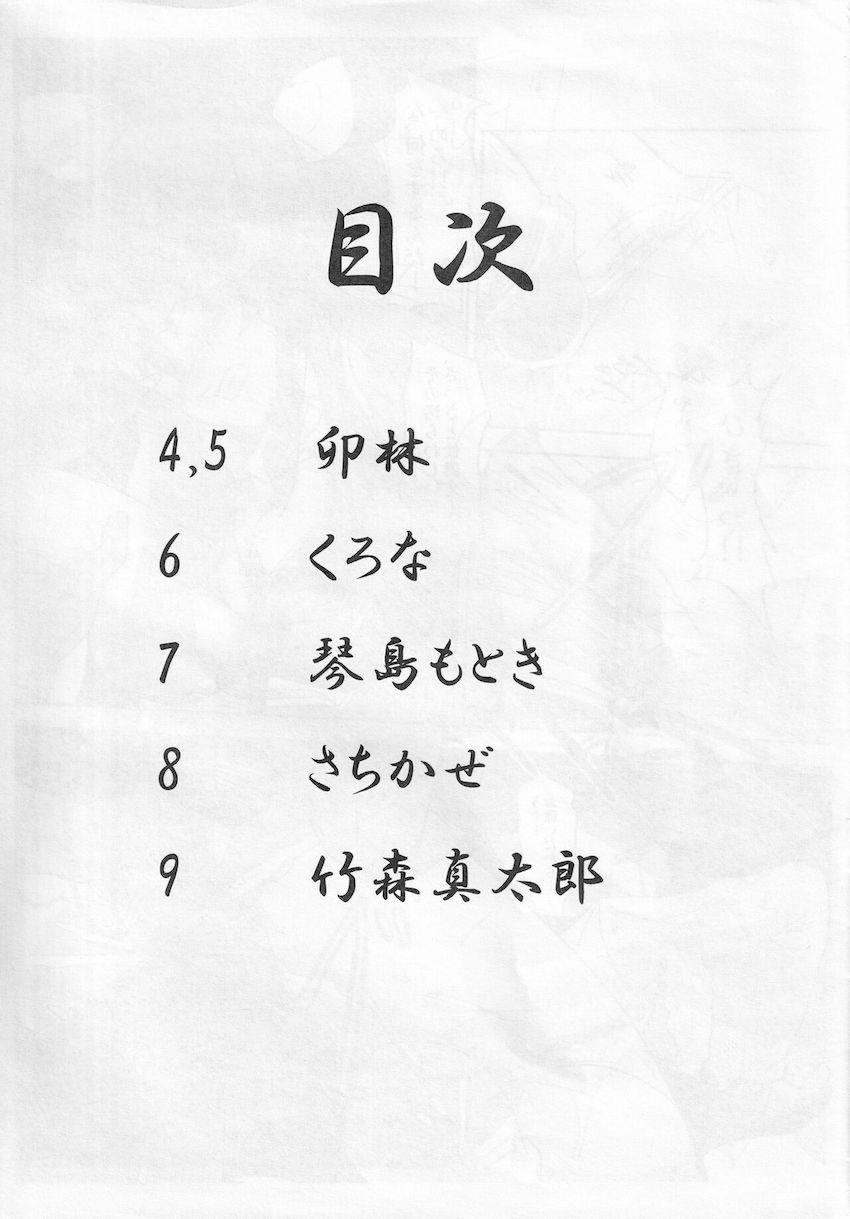 目次
4,5 卯林
6 くろな
7 琴島もとき
8 さちかぜ
9 竹森真太郎